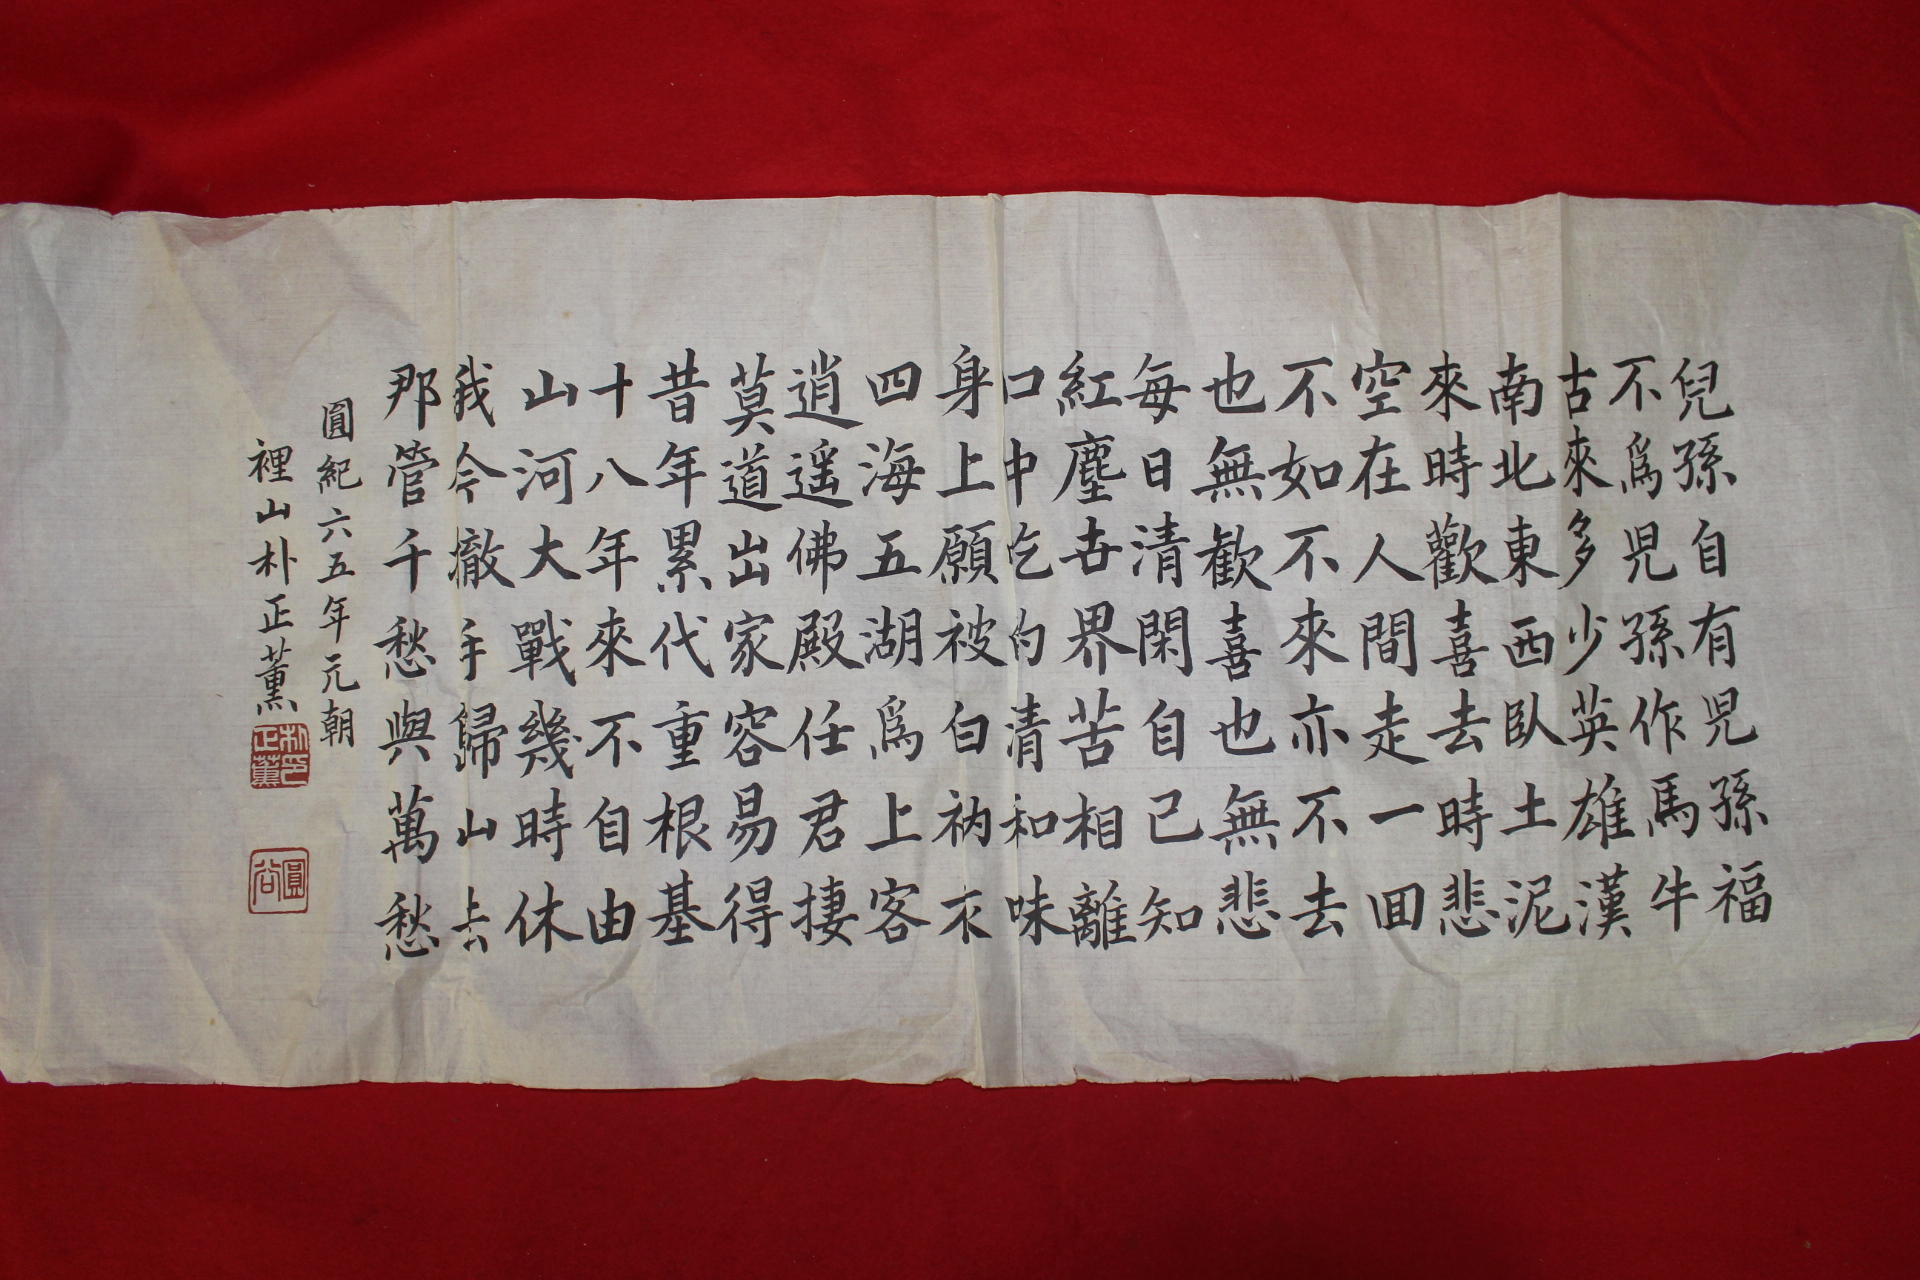 兒孫自有児孫福
不爲児孫作馬牛
古來多少英雄漢
南北東西臥土泥
來時歡喜去時悲
空在人間走一回
不如不來亦不去
也無歡喜也無悲
每日清閑自己知
紅塵世界苦相離
口中吃的清和味
身上願被白衲衣
四海五湖爲上客
逍遥佛殿任君捿
莫道出家容易得
昔年累代重根基
十八年來不自由
山河大戰幾時休
我今撤手歸山去
那管千愁與萬愁
圓紀六五年元朝
裡山朴正薰
朴正薰印
圓谷